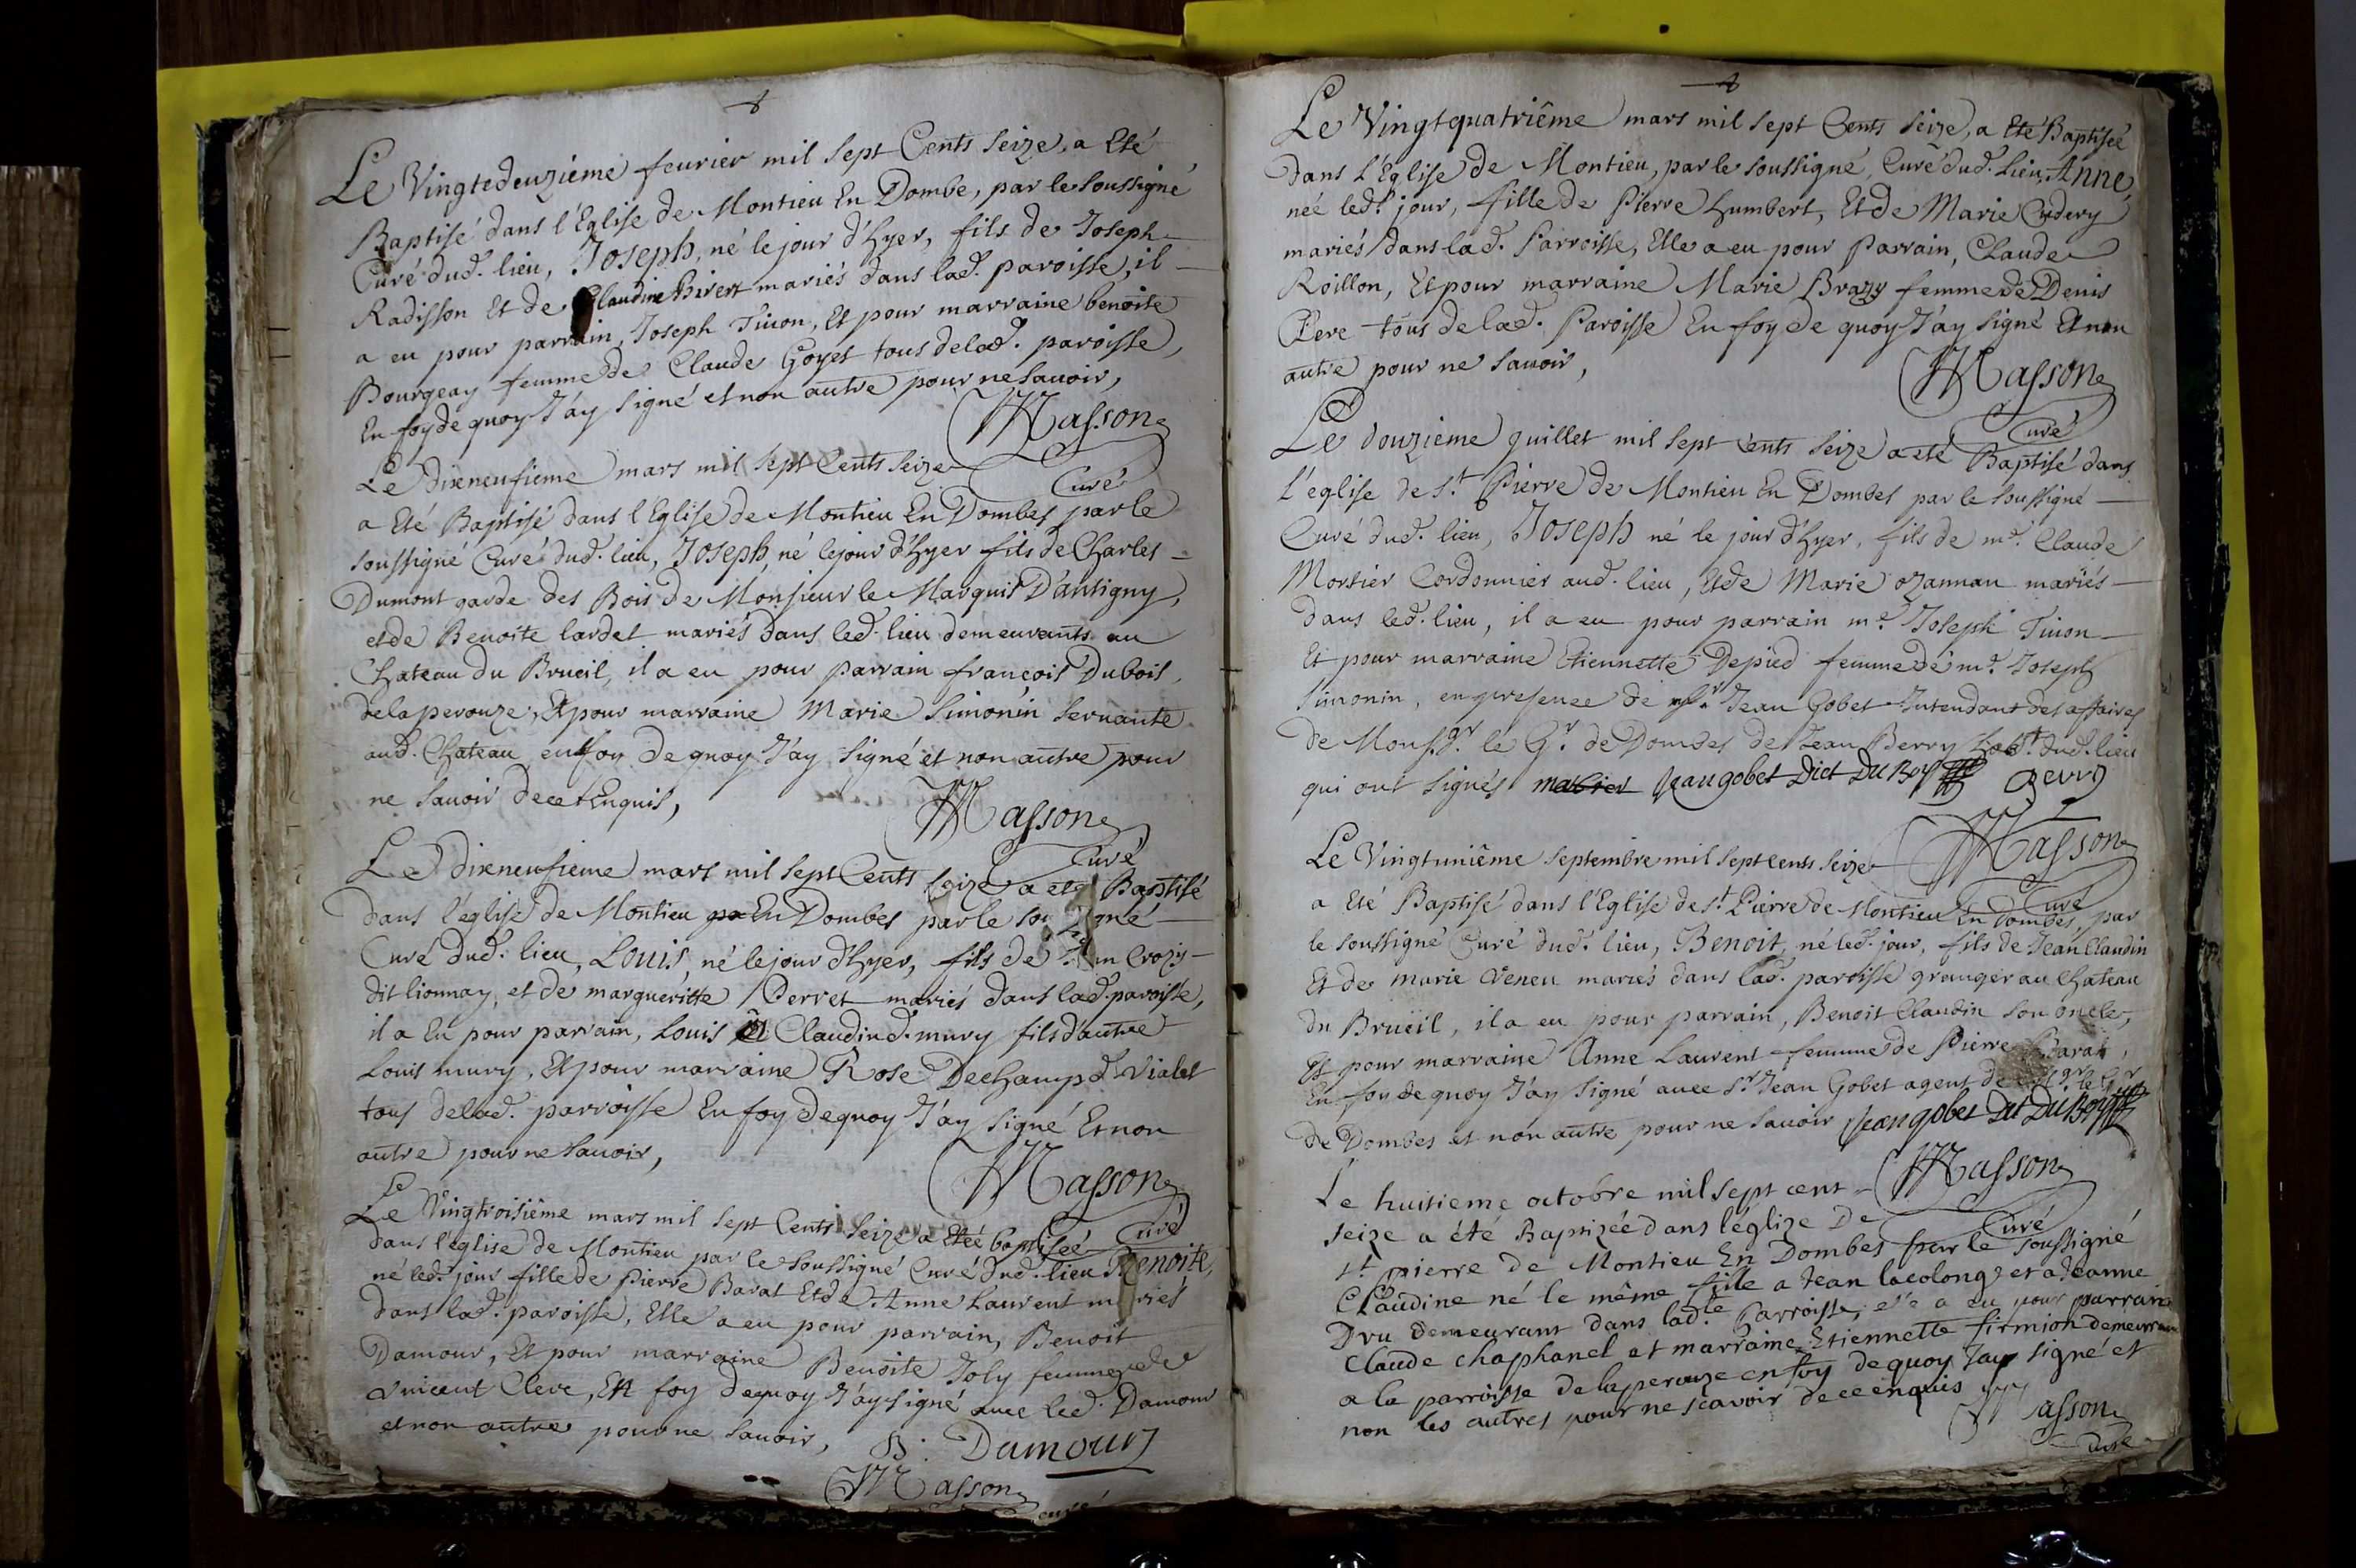 Le Vingtedeuziéme feurier mil Sept Cents Seize, a Eté
Baptisé dans l'Eglise de Montieu En Dombe, par le Soussigné
Curé dud. lieu, Joseph, né le jour d'hyer, fils de Joseph
Radisson Et de Claudine Birert mariés dans lad. paroisse, il
a eu pour parrain, Joseph Tiuon, Et pour marraine benoite
Bourgeay femme de Claude Goyet tous de lad. paroisse,
En foy de quoy J'ay Signé et non autre pour ne Sauoir,
Masson
Curé
Le dixneufieme mars mil Sept Cents Seize
a Eté Baptisé dans l'Eglise de Montieu En Dombes par le
soussigné Curé dud. lieu, Joseph, né le jour d'hyer fils de Charles
Dumont garde des Bois de Monsieur le Marquis D'antigny,
et de Benoite lardet mariés dans led. lieu demeurants au
Chateau du Brueil, il a eu pour parrain françois Dubois,
de la perouze, Et pour marraine Marie Simonin Seruante
aud. Chateau en foy de quoy J'ay Signé et non autre pour
ne Sauoir de ce Enquis,
Masson
Curé
Le dixneufieme mars mil Sept Cents Seize a eté Baptisé
dans l'eglise de Montieu En Dombes par le
Curé dud. lieu, Louis, né le jour d'hyer, fils de Crozy
dit lionnay, et de margueritte Perret mariés dans lad. paroisse,
il a Eu pour parrain, Louis Claudin d. mury fils d'autre
Louis mury, Et pour marraine Rose Dechamp d. Vialet
tous de lad. parroisse En foy de quoy J'ay Signé Et non
autre pour ne Sauoir,
Masson
Curé
Le Vingtroisiême mars mil Sept Cents Seize a Etée baptisée
dans l'eglise de Montieu par le Soussigné Curé dud. lieu Benoite,
né led. jour fille de Pierre Barat Et de Anne Laurent mariés
dans lad. paroisse, Elle a eu pour parrain, Benoit
Damour, Et pour marraine Benoite Joly femme de
Vincent Clere, En foy de quoy J'ay Signé auec led. Damour
et non autre pour ne Sauoir,
B. Damour
Masson
curé
Le Vingtquatriême mars mil Sept Cents Seize, a Eté Baptisée
dans l'Eglise de Montieu, par le soussigné, Curé dud. Lieu, Anne,
née led. jour, fille de Pierre humbert, Et de Marie Cudery
mariés dans lad. Parroisse, Elle a eu pour Parrain, Claude
Roillon, Et pour marraine Marie Brazy femme de Denis
Pere tous de lad. Paroisse En foy de quoy J'ay Signé Et non
autre pour ne Sauoir,
Masson
Curé
Le douzieme juillet mil Sept cents Seize a eté Baptisé dans
l'eglise de St. Pierre de Montieu En Dombes par le Soussigné
Curé dud. lieu, Joseph né le jour d'hyer, fils de me. Claude
Mortier Cordonnier aud. lieu, Et de Marie ozannan mariés
dans led. lieu, il a eu pour parrain me. Joseph Tiuon
Et pour marraine Etiennette Depied femme de me. Joseph
Simonin, en presence de Jean Gobet Intendant des affaires
de Monsgr. le Gr. de Dombes de Jean Berry habt. dud. lieu
qui ont Signés mortier Jean gobet Dict Du Boy Berry
Masson
Curé
Le Vingtuniême Septembre mil Sept cents Seize
a Eté Baptisé dans l'Eglise de St. Pierre de Montieu En Dombes, par
le Soussigné Curé dud. lieu, Benoit, né led. jour, fils de Jean Claudin
Et de marie Veneu mariés dans lad. paroisse granger au Chateau
du Brüeil, il a eu pour parrain, Benoit Claudin Son oncle,
Et pour marraine Anne Laurent femme de Pierre Barat,
En foy de quoy J'ay Signé auec Sr. Jean Gobet agent de le Gr
de Dombes et non autre pour ne Sauoir Jean gobet Dit Du Boy
Masson
Curé
Le huitieme octobre mil Sept cent
Seize a été Baptizée dans l'églize De
St. pierre de Montieu En Dombes par le soussigné
Claudine né le même fille a Jean lacolonge et a Jeanne
Dru demeurant dans lad.te Parroisse, elle a eu pour parrain
Claude chaphanel et marraine Etiennette firmion demeurant
a la parroisse de laperouze en foy de quoy Jay Signé et
non les autres pour ne scavoir de ce enquis
Masson
Curé